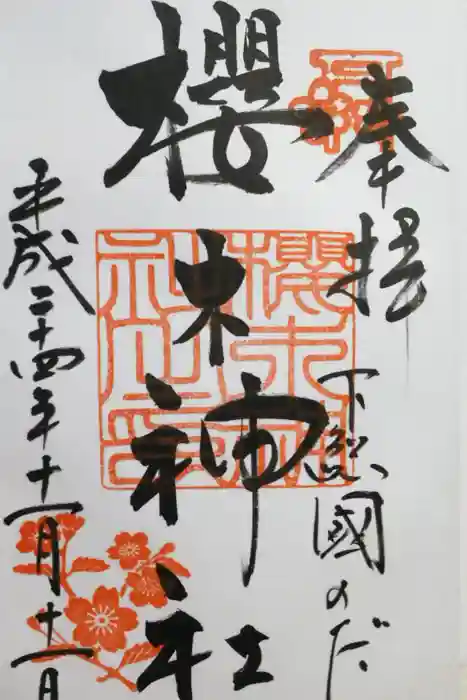 奉拝
下総國のだ
櫻木神社
平成二十四年十一月十一日
櫻木神社之印